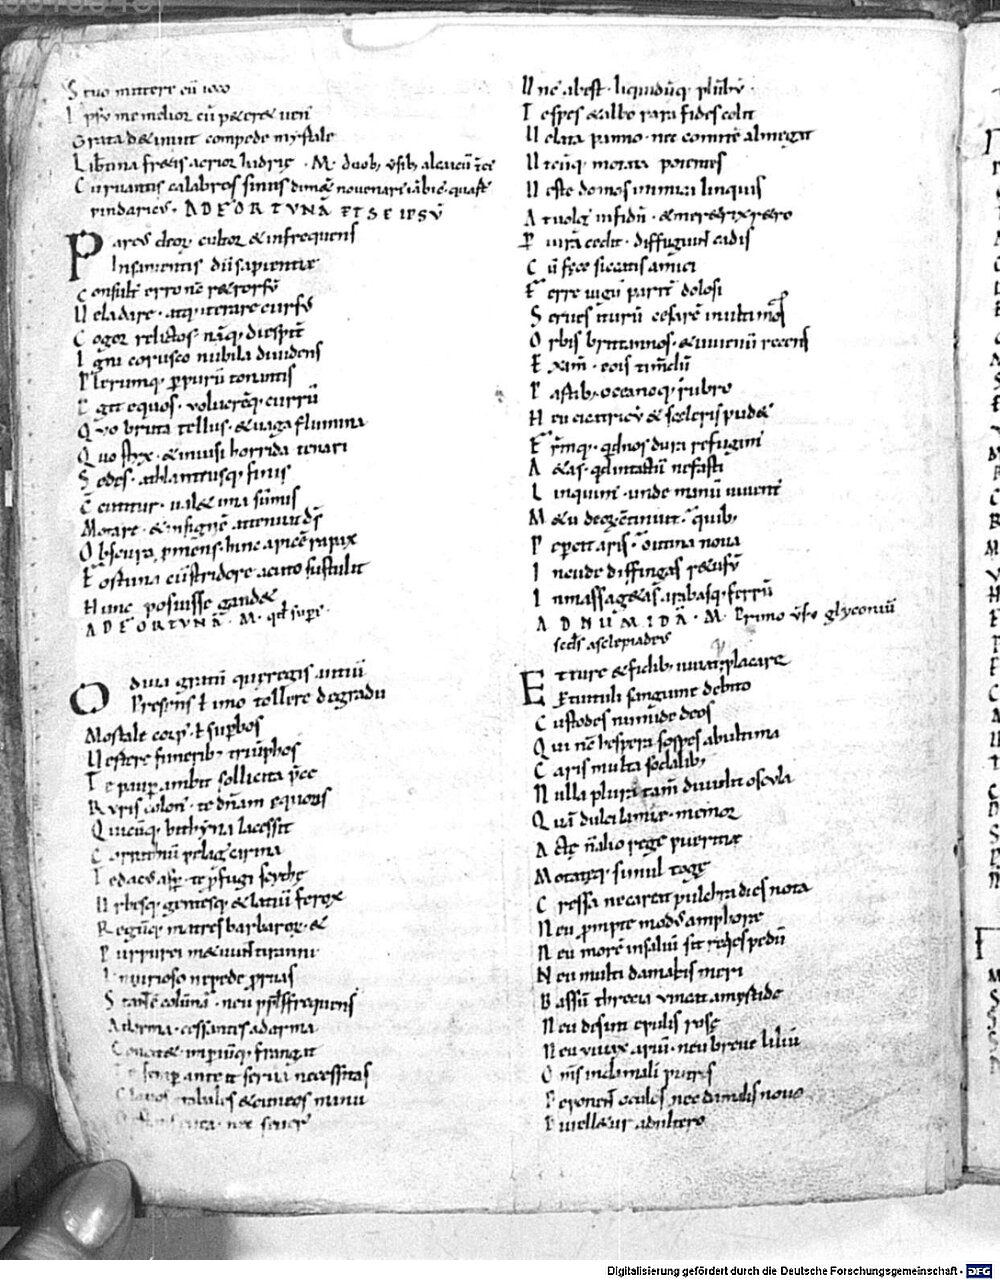 S tuo mittere cũ ioco
I psũ me melior cũ peteret uen̄
Grata detinuit compede myrtale
Libtina fretis acrior hadrię · M. duob; v̄sib; alcaicũ
C uruantis calabros sinus
rindaricũ · AD FORTVNÃ ET SE IPSṼ
P arcus deoꝝ cultor & infrequens
Insanientis dũ sapientię
C onsult̄ erro nc̄ retrorsũ
V ela dare · atq; iterare cursus
C ogor relictos · nãq; diespit̄
I gni corusco nubila diuidens
Plerunq; ꝑ purũ tonantis
E git equos · volucrēq; currũ
Q uo bruta tellus · & uaga flumina
Q uo styx · & inuisi horrida tenari
S edes · athlanteusq; finis
C̄ cutitur · ual& ima sũmis
Mutare · & insignē attenuat ds̄
O bscura ꝓmens · hinc apicē rapax
F ortuna cũ stridore acuto sustulit
H unc posuisse gaud&
AD FORTVNÃ · M. qd̄ supe
O diua gratũ quę regis antiũ
Presens ł imo tollere de gradu
Mortale corp᾽ · ł supbos
V ertere funerib; triũphos
T e paup ambit sollicita p̄ce
R uris colon᾽ · te dñam equoris
Q uicũq; bithyna lacessit
C arpatiũ pelag᾽ carina
T e dacus asp · te ꝓfugi scythę
V rbesq; gentesq; & latiũ ferox
R egũq; matres barbaroꝝ · &
P urpurei metuunt tiranni
I niurioso ne pede ꝓruas
S tantē colũnã · neu ppls̄ frequens
A d arma · cessantis ad arma
C oncit& · imperiũq; frangat
T e semp anteit serua necessitas
C lauos trabales & cuneos manu
V nc᾽ abest · liquidũq; plũbũ
T e spes & albo rara fides colit
V elata panno · nec comitē abnegat
V tcũq; mutata potentes
V este domos inimica linquis
A t uolg᾽ infidũ · & meretrix retro
P iura cedit · diffugiunt cadis
C ũ fęce siccatis amici
F erre iugũ parit̄ dolosi
S erues iturũ cesarē in ultimos
O rbis britannos · & iuuenũ recens
E xam̄ · eois timdũ
P artib; oceanoq; rubro
H eu cicatricũ & sceleris pud&
F r̄mq; · qd nos dura refugim᾽
A etas · qd intactũ nefasti
L inquim᾽ · unde manũ iuuent᾽
M etu deoꝝ c̄tinuit · quib;
P epcit aris · o utina noua
I ncude diffingas retusũ
I n massagetas arabasq; ferrũ
AD NVMIDÃ · M. Primo v̄su glyconiũ
scd̄s asclepiadeus
E t ture & fidib; iuuat placare
Et uituli sanguine debito
C ustodes numide deos
Q ui nc̄ hesperia sospes ab ultima
C aris multa sodalib;
N ulla plura tam̄ diuidit oscula
Q uã dulci lamię · memor
A ctę n̄ alio rege puertię
Mutatęq; simul togę
C ressa ne careat pulchra dies nota
Neu ꝓmptę modus amphorę
Neu morē in saliũ sit requies pedũ
Neu multi damalis meri
B assũ threcia vincat amystide
Neu desint epulis rosę
Neu viuax apiũ · neu breue liliũ
O mīs in damali putris
D eponent oculos · nec damalis nouo
D iuelletur adultero
Digitalisierung gefördert durch die Deutsche Forschungsgemeinschaft - DFG